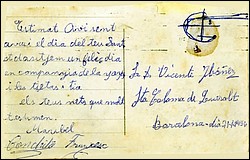 Estimat Avi sent
avui el dia del teu Sant
et desitjem un feliç dia
en companyia de la yaya
i les tietas + tia
els teus nets que més
t'estimen.
Maribel
Conchita Francesc
Sr. D. Vicente Ybáñez
Sta Coloma de Queralt
Barcelona